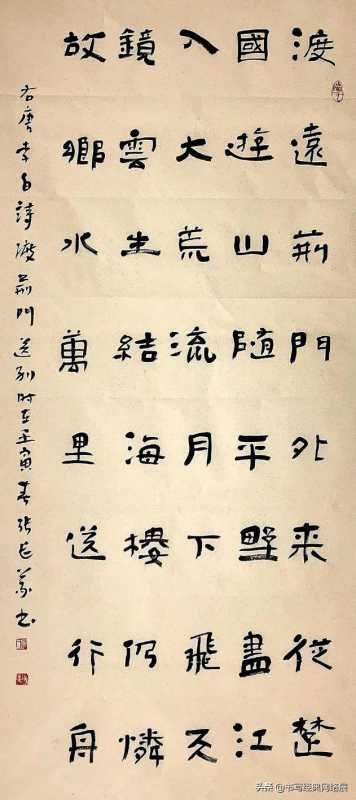 渡遠荊門外來從楚
國遊山随平野盡江
入大荒流月下飛天
鏡雲生結海樓仍憐
故鄉水萬里送行舟
右唐李白詩渡荊門送别时在壬寅春張長義书
头条 @书写经典网络展